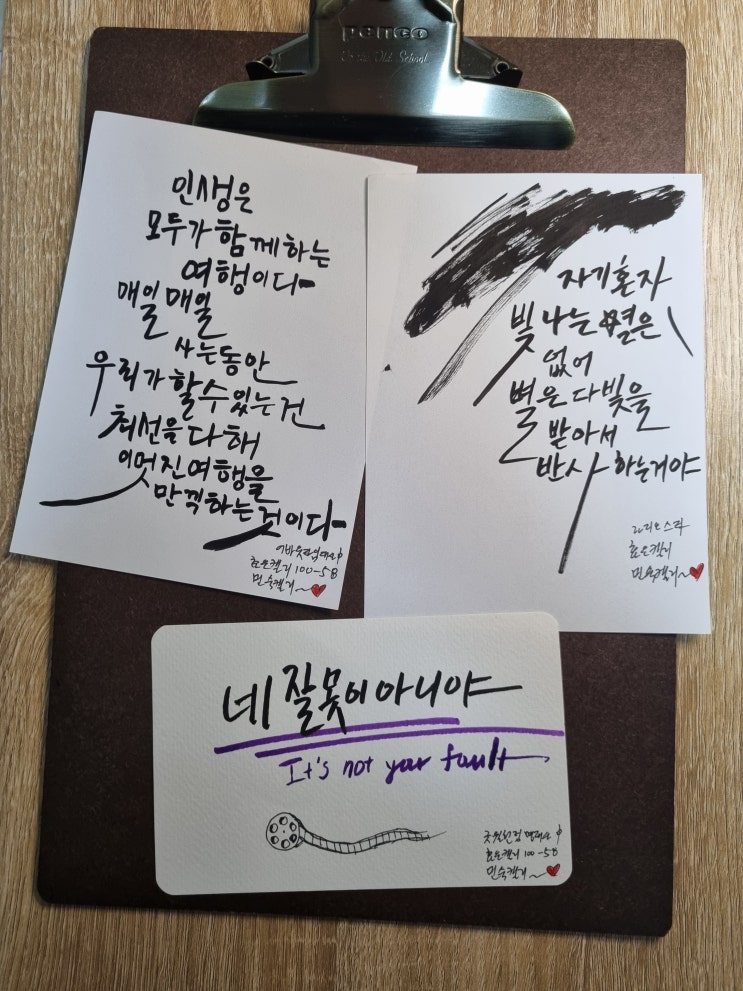 penco
Old School
인생은
모두가 함께하는
여행이다
매일매일
사는동안
우리가 할수있는건
최선을 다해
이멋진여행을
만끽하는것이다
어바웃타임 대사 中
효오캘리 100-58
민숙캘리~
자기혼자
빛나는 별은
없어
별은 다빛을
받아서
반사하는거야
라디오스타
효오캘리
민숙캘리~
네 잘못이아니야
It's not your fault
굿윌헌팅 명대사 中
효오캘리 100-58
민숙캘리~